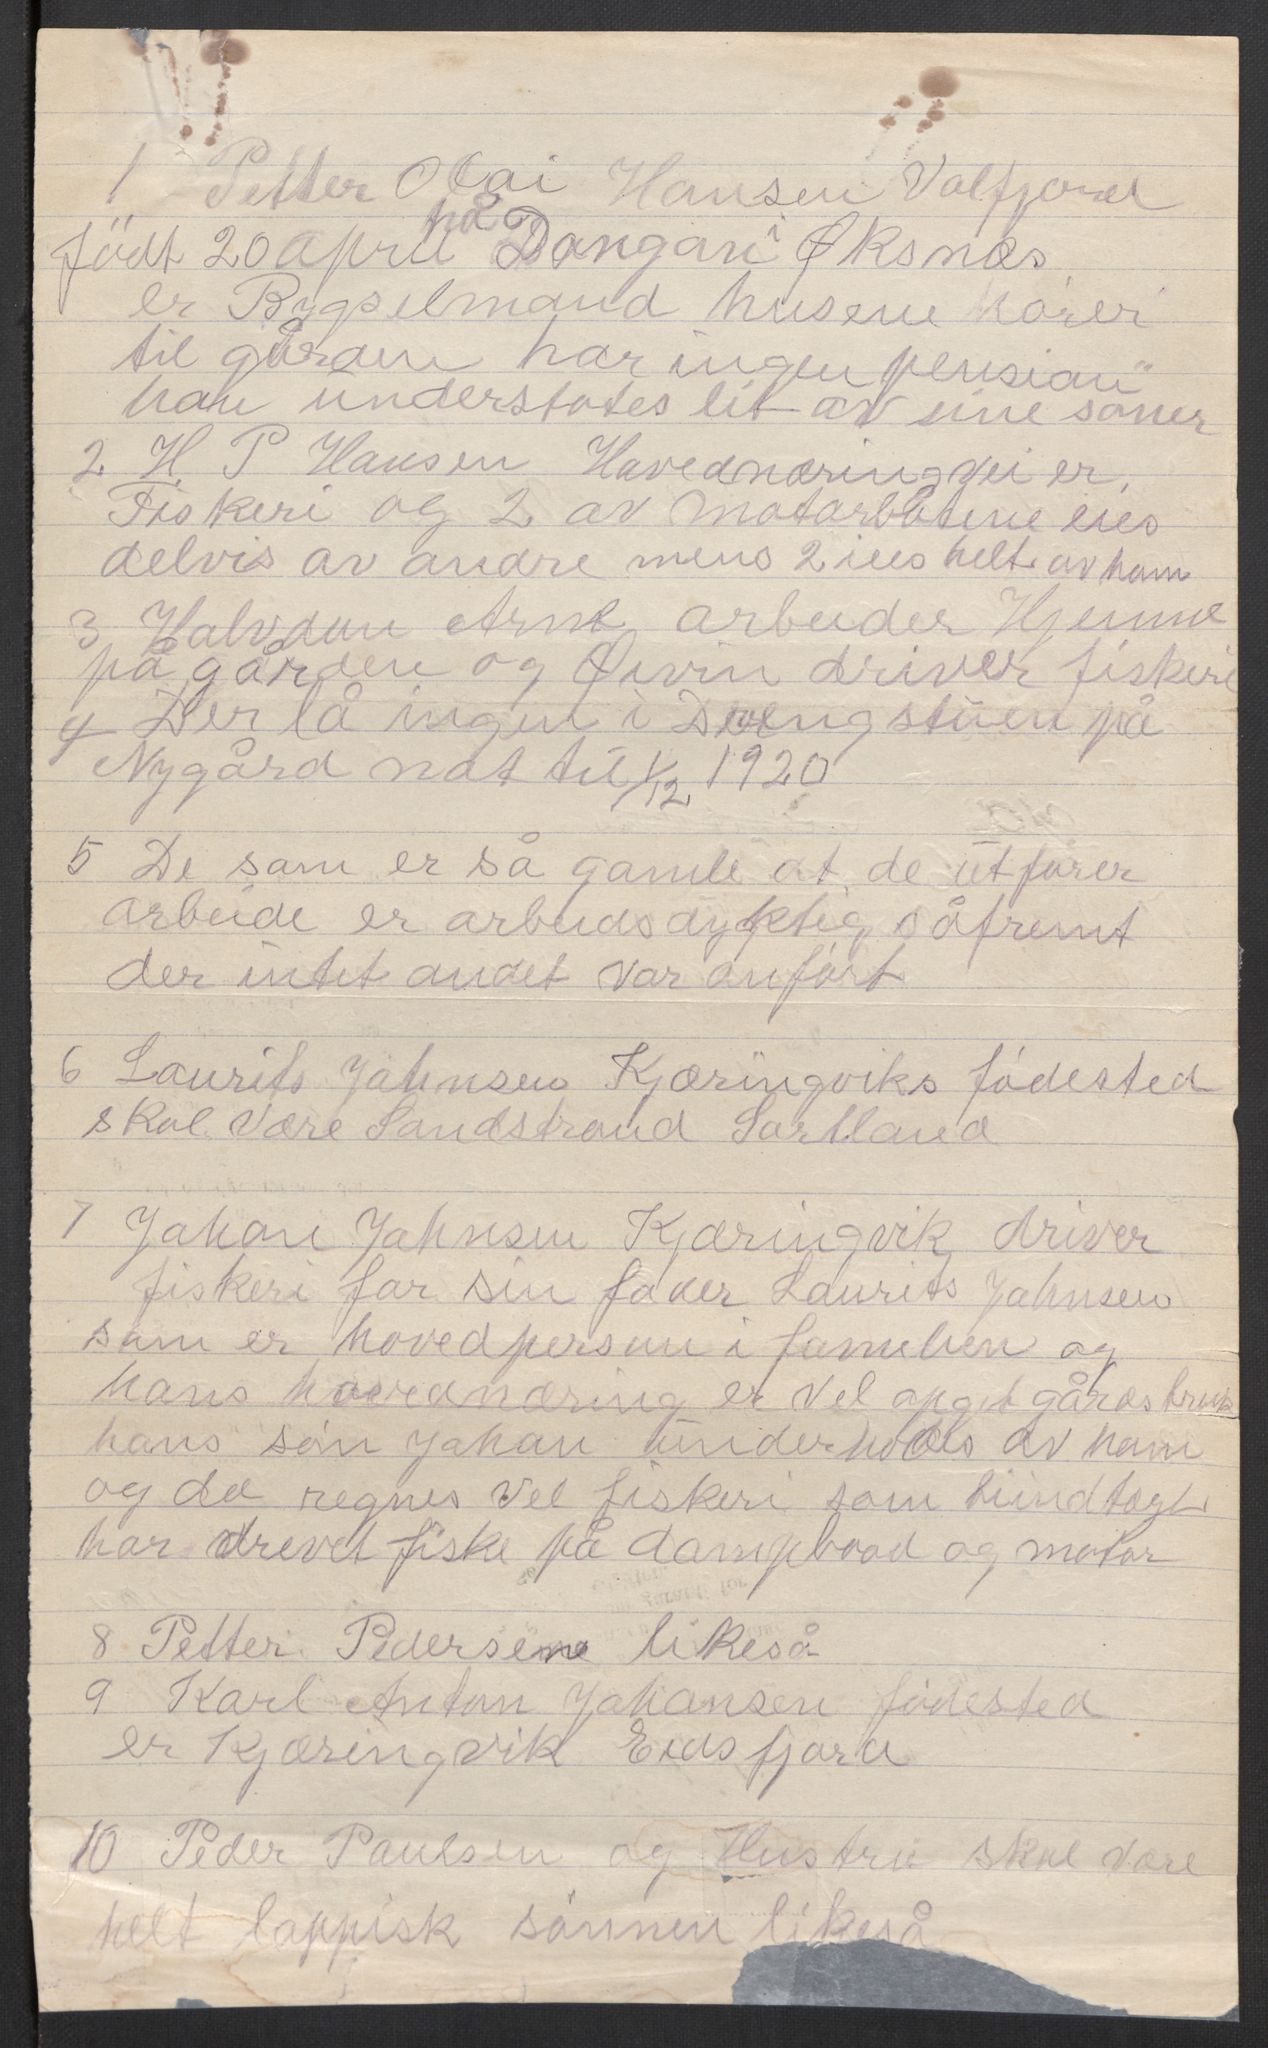 1 Petter Olai Hansen Valfjord
født 20 April på Dangan i Øksnes
er Bygselmand husene hörer
til gården har ingen pension
han understøtes lit av sine sóner
2 H. P Hansen Hovednæringvei er
Fiskeri og 2 av motorbåtene eies
delvis av andre mens 2 iees helt av ham
3 Halvdan Arnt arbeider Hjemme
på gården og Øivin driver fiskeri
4 Der lå ingen i Drengstuen på
Nygård nat til 1/12 1920
5 De som er så gamle at de utfører
arbeide er arbeidsdyktig såfremt
der intet andet var anført
6 Laurits Johnsen Kjæringviks fódested
skal være Sandstrand Sortland
7 Johan Johnsen Kjæringvik driver
fiskeri for sin fader Laurits Johnsen
som er hovedperson i familien og
hans hovednæring er vel opgit gårdsbruk
hans són Johan underholdes av ham
og da regnes vel fiskeri som bindtægt
har drevet fiske på dampbaad og motor
8 Petter Pedersen likeså
9 Karl Anton Johansen fódested
er Kjæringvik Eidsfjord
10 Peder Paulsen og Hustru skal være
helt lappisk sónnen likeså